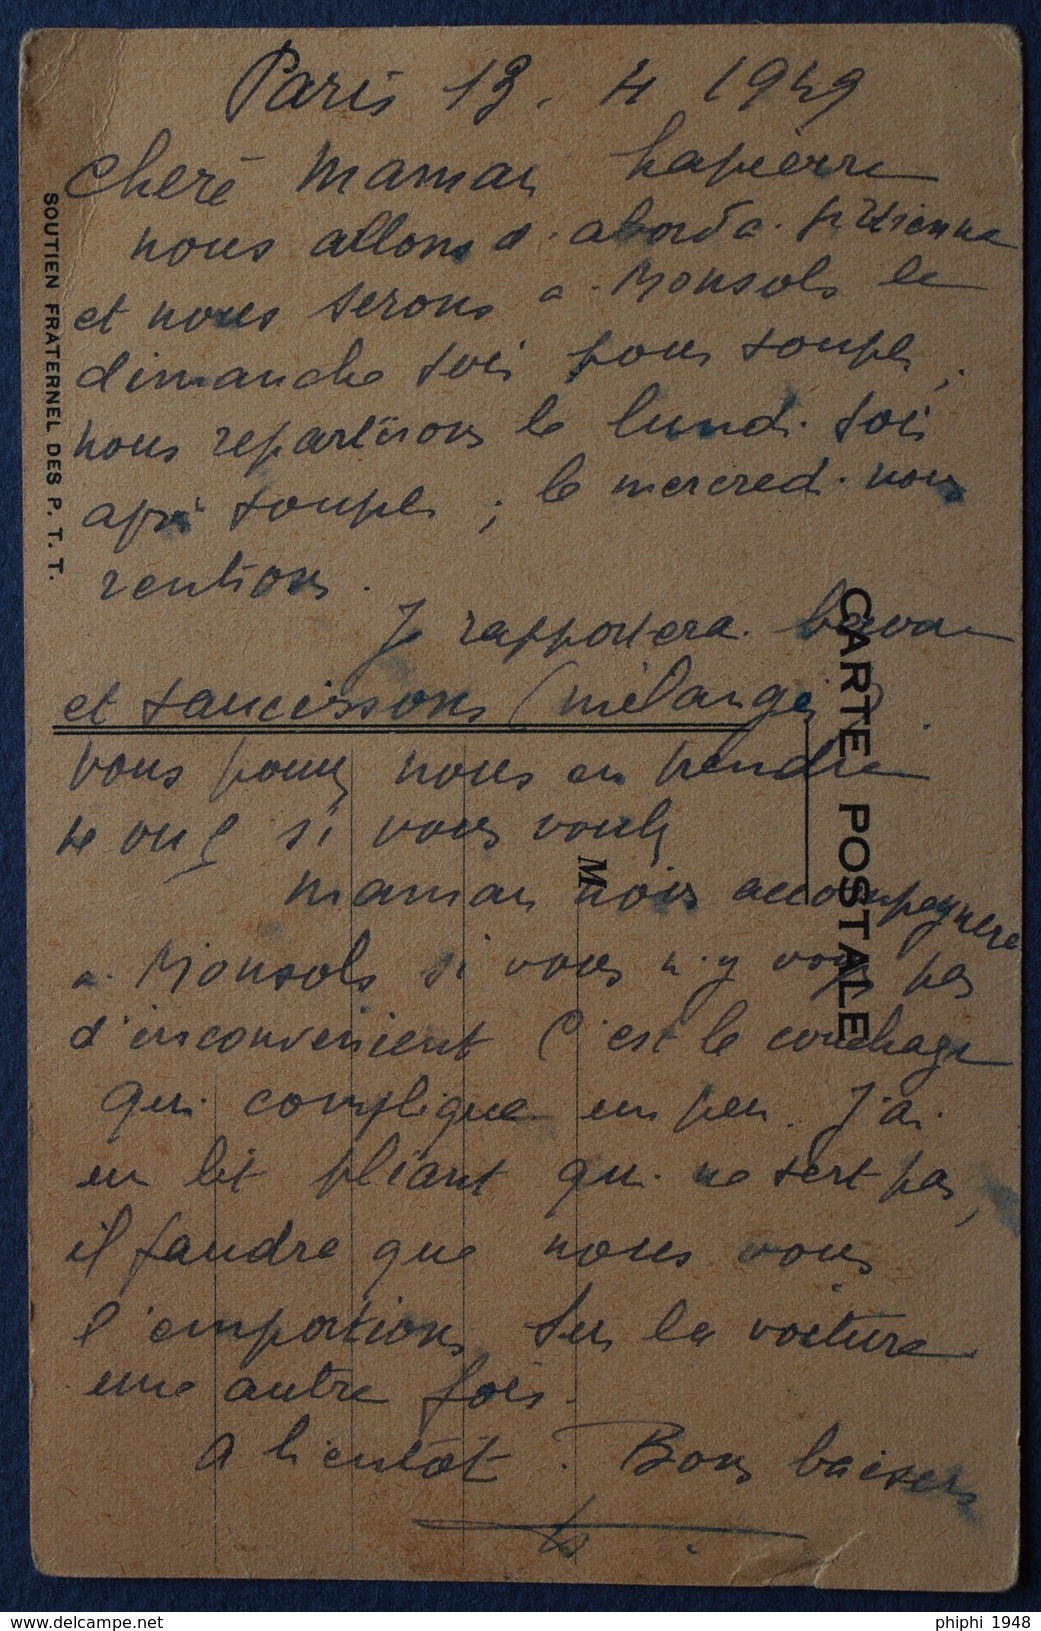 Paris 13. 4 1949
Cheré Maman Lapierre
nous allons d'abord a St Etienne
et nous serons a Monsols le
dimanche soir pour souper,
nous repartirons le lundi soir
après souper ; le mercredi nous
rentrions.
Je rapporterai
et saucissons (mélangés)
vous pouvez nous en prendre
si vous voulez
Maman nous accompagnera
a Monsols si vous n'y voyez pas
d'inconvenient C'est le couchage
qui complique un peu. J'ai
un lit pliant qui ne sert pas,
il faudra que nous vous
l'emportions sur la voiture
une autre fois.
A bientôt. Bons baisers
SOUTIEN FRATERNEL DES P. T. T.
CARTE POSTALE
M
phiphi 1948
www.delcampe.net